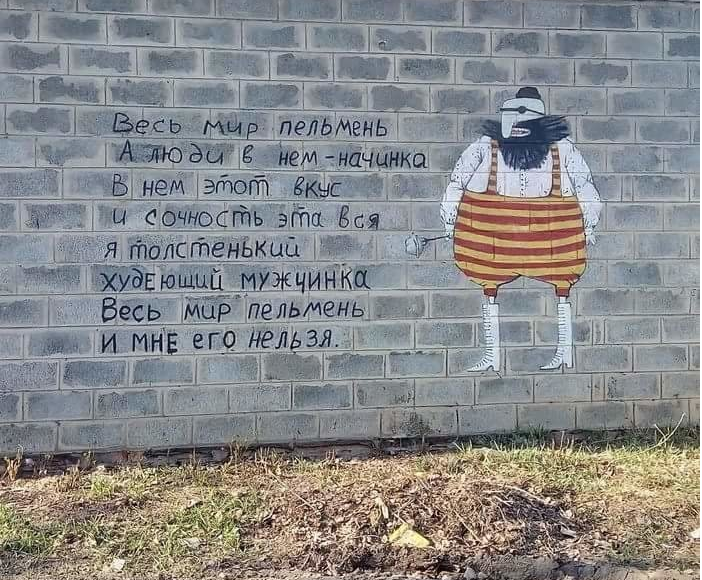 Весь мир пельмень
А люди в нем-начинка
В нем этот вкус
и сочность эта вся
я толстенький
худЕющий мужчинка
Весь мир пельмень
и мнЕ его нельзя.